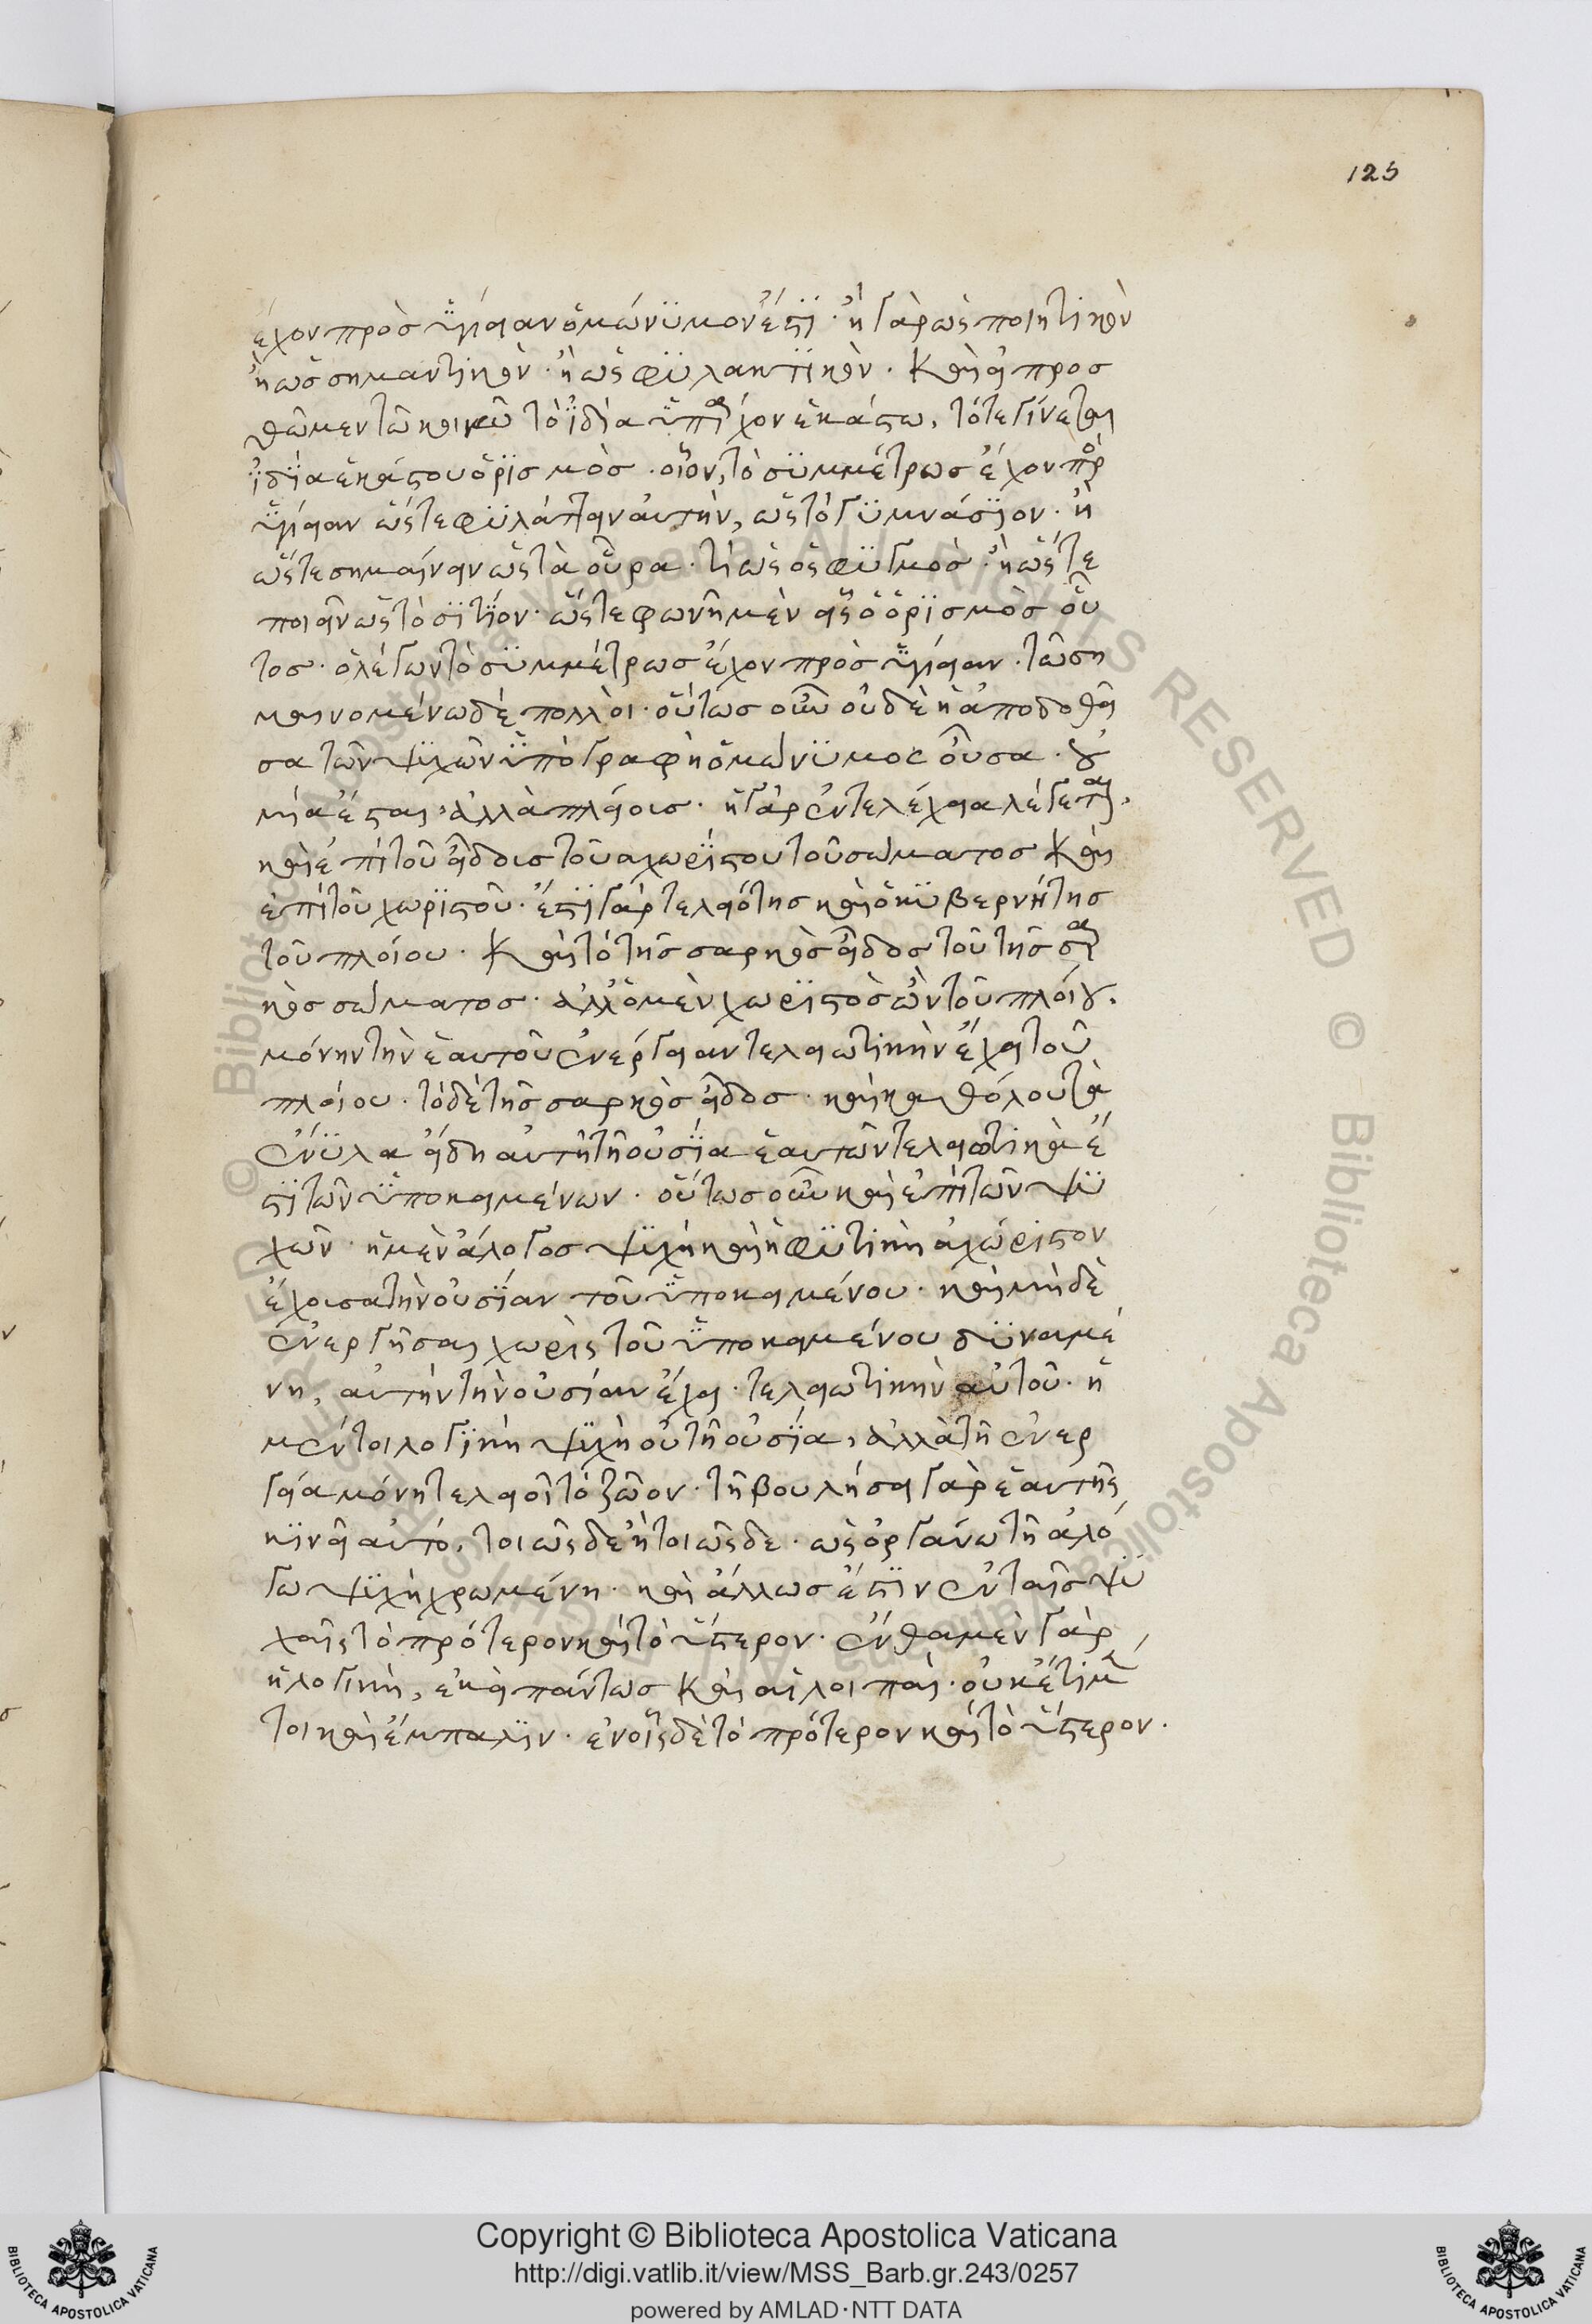 125
ἔχον πρὸς ὑγίειαν ὁμώνυμον ἐστί· ἢ γὰρ ὡς ποιητικὸν
ἢ ὡς σημαντικὸν· ἢ ὡς φυλακτικὸν. Καὶ εἰ προσ
θῶμεν τῶ κοινῶ τὸ ἰδία ὑπάρχον ἑκάστω, τότε γίνεται
ἰδία ἑκάστου ὁρισμὸς. οἷον, τὸ συμμέτρως ἔχον πρὸς
ὑγίειαν ὥστε φυλάττειν αὐτὴν, ὡς τὸ γυμνάσιον· ἢ
ὥστε σημαίνειν ὡς τὰ οὖρα. τί ὡς ὁ σφυγμὸς· ἢ ὥστε
ποιεῖν ὡς τὸ σιτίον· ὥστε φωνῆ μὲν εἷς ὁ ὁρισμὸς οὗ
τος· ὁ λέγων τὸ συμμέτρως ἔχον πρὸς ὑγίειαν. τῶ ση
μαινομένω δὲ πολλοὶ· οὕτως οὖν οὐδὲ ἡ ἀποδοθεῖ
σα τῶν ψυχῶν ὑπογραφὴ ὁμώνυμος οὖσα· οὐ
μία ἔσται, ἀλλὰ πλείους. ἡ γὰρ ἐντελέχεια λέγεται,
καὶ ἐπὶ τοῦ εἴδους τοῦ ἀχωρίστου τοῦ σώματος καὶ
ἐπὶ τοῦ χωριστοῦ· ἔστι γὰρ τελειότης καὶ ὁ κυβερνήτης
τοῦ πλοίου. Καὶ τὸ τῆς σαρκὸς εἶδος τοῦ τῆς σαρ
κὸς σώματος. ἀλλ' ὁ μὲν χωριστὸς ὢν τοῦ πλοίου.
μόνην τὴν ἑαυτοῦ ἐνέργειαν τελειωτικὴν ἔχει τοῦ
πλοίου. τὸ δὲ τῆς σαρκὸς εἶδος. καὶ καθόλου τὰ
ἔνυλα εἴδη αὐτῆ τῆ οὐσία ἑαυτῶν τελειωτικὰ ἐ
στὶ τῶν ὑποκειμένων. οὕτως οὖν καὶ ἐπὶ τῶν ψυ
χῶν· ἡ μὲν ἄλογος ψυχὴ καὶ ἡ φυτικὴ ἀχώριστον
ἔχουσα τὴν οὐσίαν τοῦ ὑποκειμένου. καὶ μηδὲ
ἐνεργῆσαι χωρὶς τοῦ ὑποκειμένου δυναμέ
νη, αὐτὴν τὴν οὐσίαν ἔχει· τελειωτικὴν αὐτοῦ· ἡ
μέντοι λογικὴ ψυχὴ οὐ τῆ οὐσία, ἀλλὰ τῆ ἐνερ
γεία μόνη τελειοῖ τὸ ζῶον· τῆ βουλήσει γὰρ ἑαυτῆς
κινεῖ αὐτό, τοιῶςδε ἢ τοιῶςδε· ὡς ὀργάνω τῆ ἀλό
γω ψυχὴ χρωμένη· καὶ ἄλλως ἔστιν ἐν ταῖς ψυ
χαῖς τὸ πρότερον καὶ τὸ ὕστερον· ἔνθα μὲν γὰρ
ἡ λογικὴ, ἐκεῖ πάντως καὶ αἱ λοιπαὶ· οὐκέτι μέν
τοι καὶ ἔμπαλιν· ἐν οἷς δὲ τὸ πρότερον καὶ τὸ ὕστερον.
© Biblioteca Apostolica Vaticana ALL RIGHTS RESERVED
Copyright © Biblioteca Apostolica Vaticana
http://digi.vatlib.it/view/MSS_Barb.gr.243/0257
powered by AMLAD·NTT DATA
BIBLIOTECA APOSTOLICA VATICANA
BIBLIOTECA APOSTOLICA VATICANA